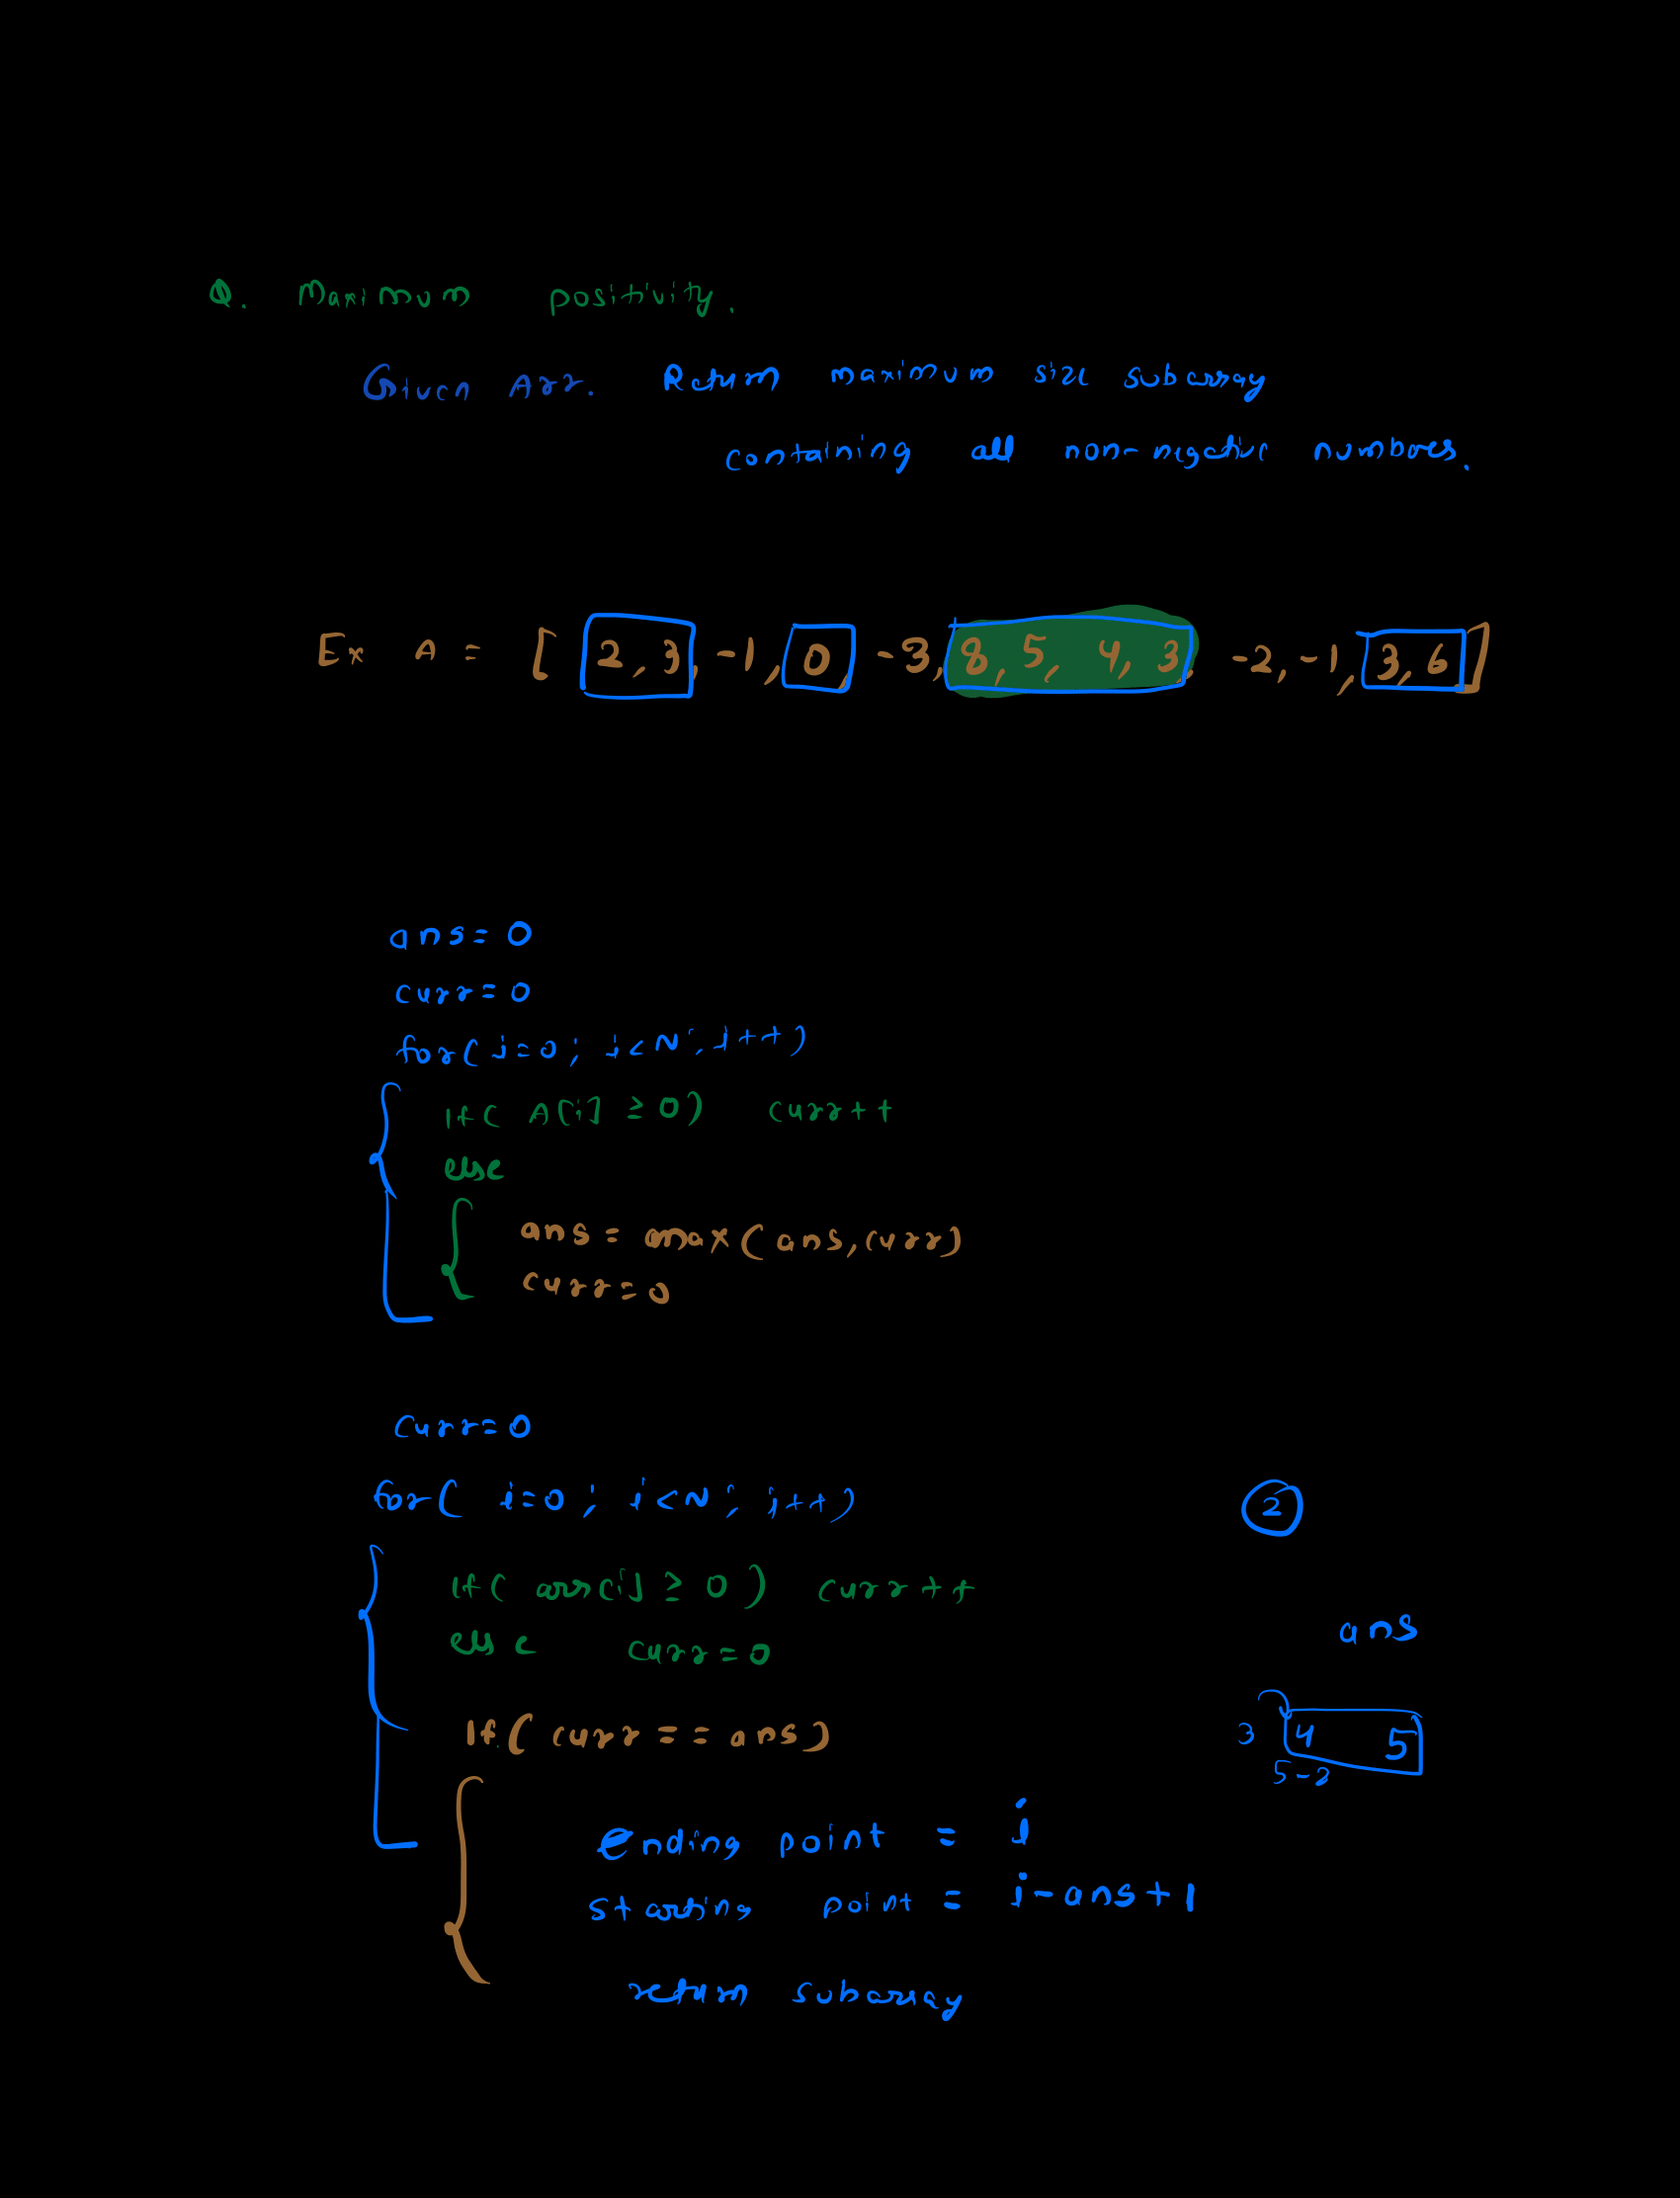 Q. Maximum positivity.
Given Arr. Return maximum size subarray
containing all non-negative numbers.
Ex A = [ 2, 3, -1, 0, -3, 8, 5, 4, 3, -2, -1, 3, 6 ]
ans = 0
curr = 0
for( i=0; i<N; i++)
{
If( A[i] ≥ 0) curr++
else
{
ans = max(ans, curr)
curr = 0
curr = 0
for( i=0; i<N; i++)
2
{
If( arr[i] ≥ 0 ) curr++
else curr = 0
ans
If( curr == ans)
3 4 5
5-2
{
ending point = i
starting point = i-ans+1
return subarray